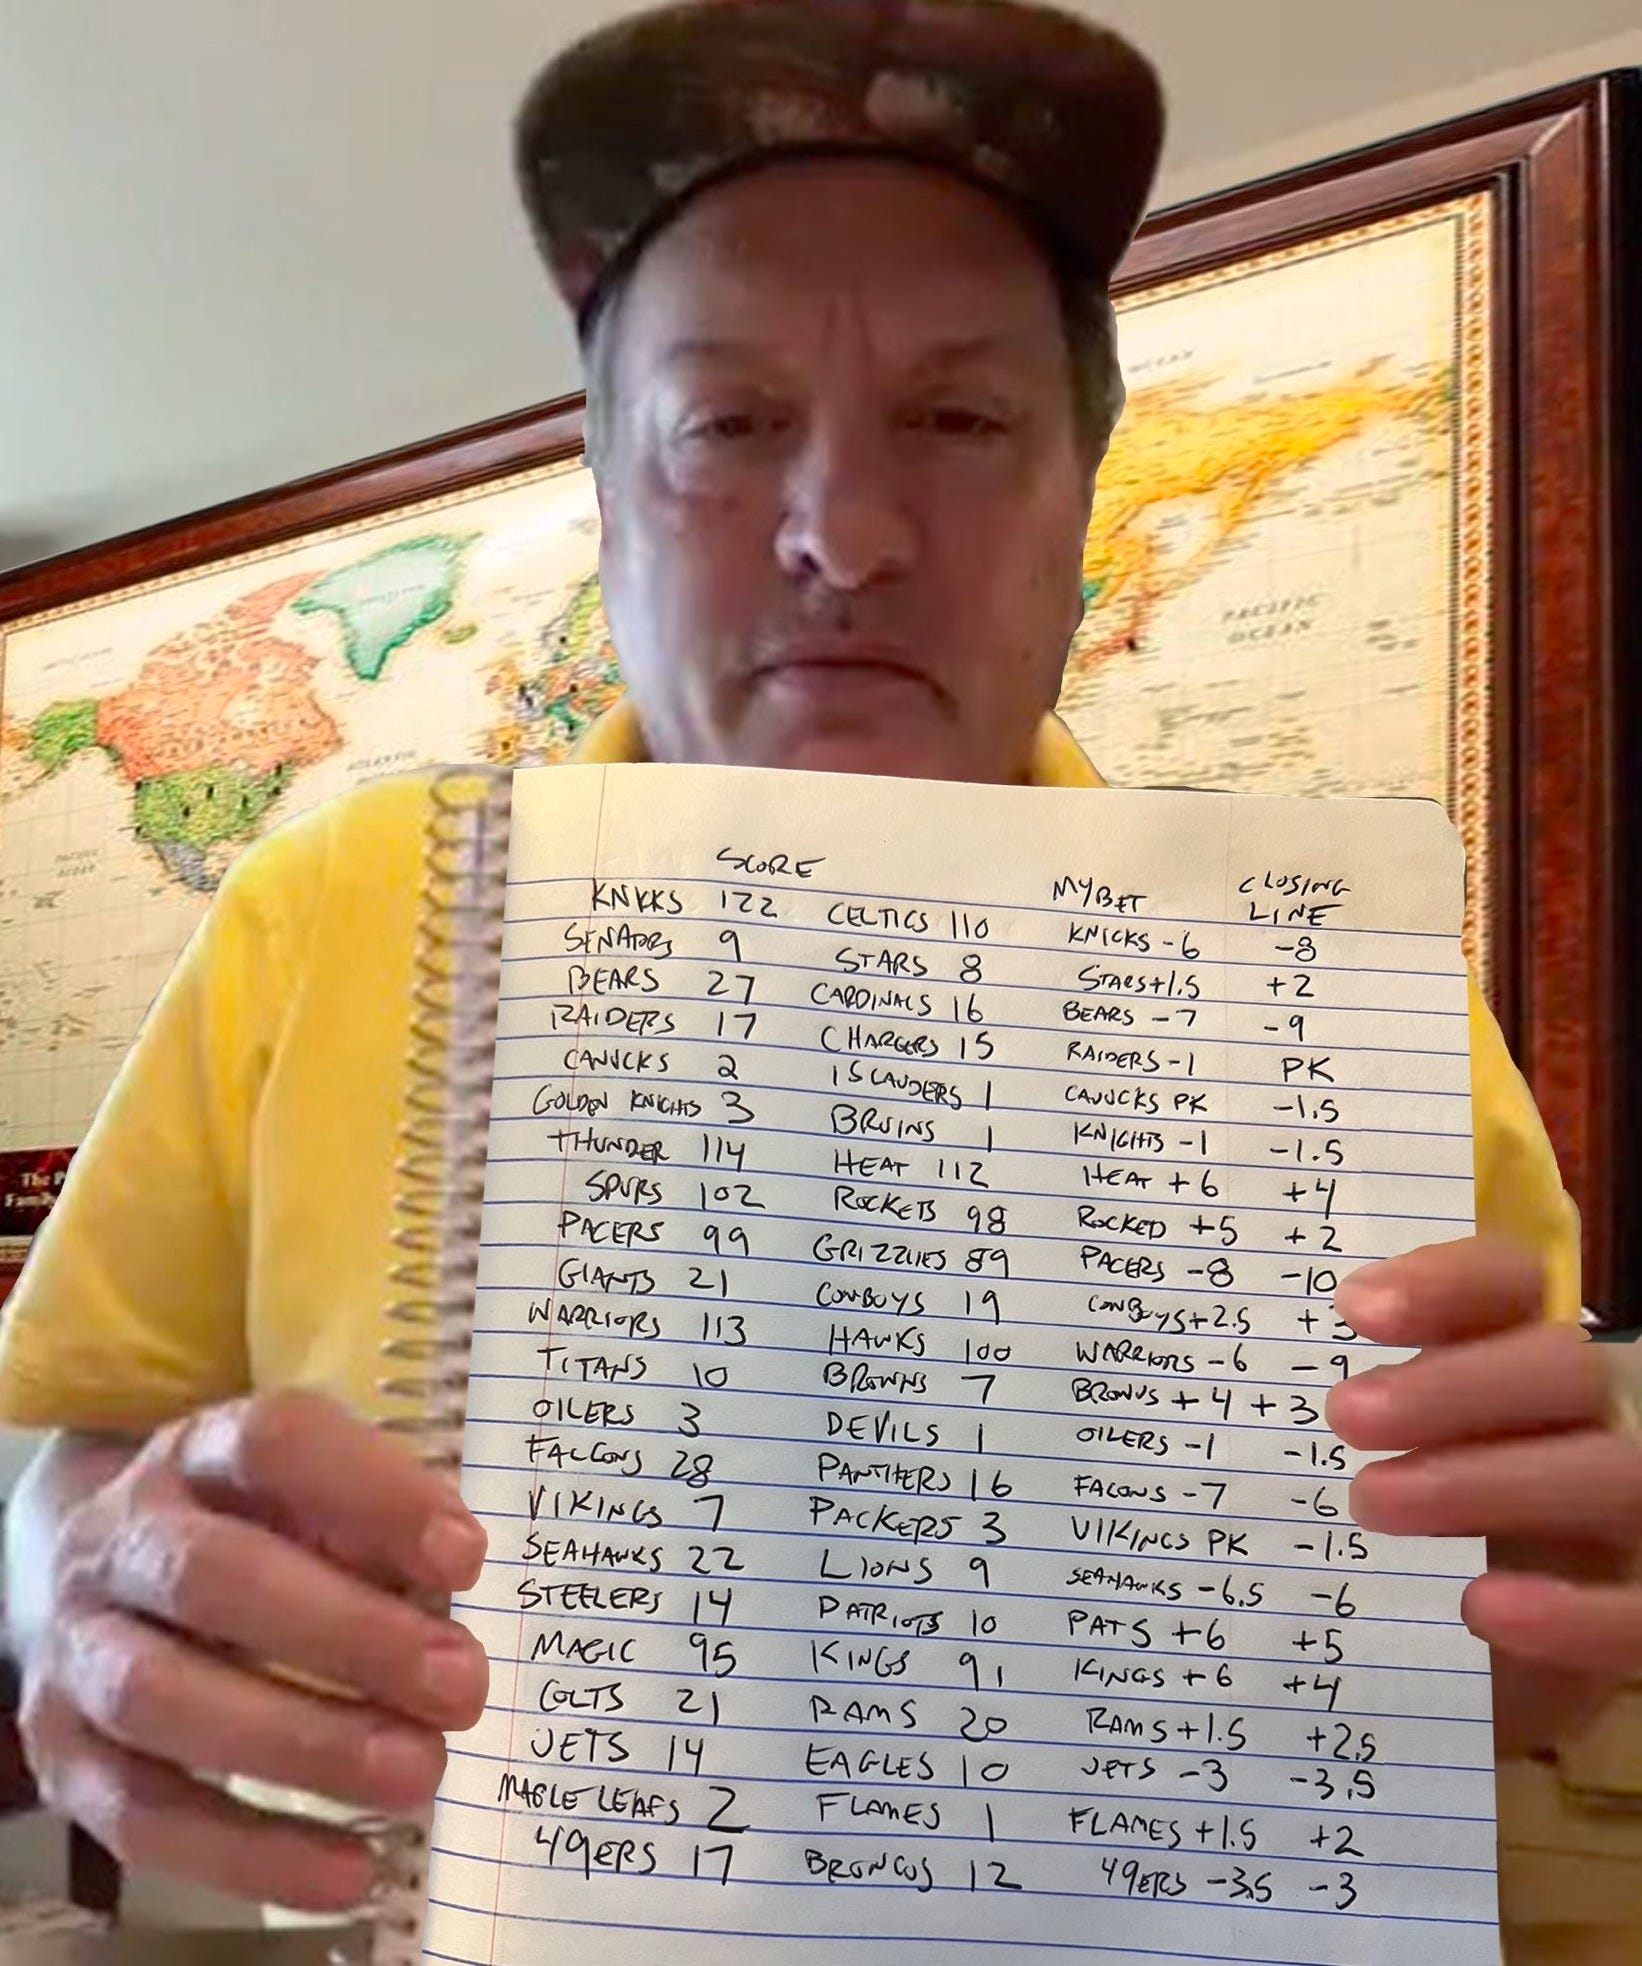 PACIFIC
OCEAN
ATLANTIC
PACIFIC
OCEAN
The
SCORE MY BET CLOSING
LINE
KNKKS 122 CELTICS 110 KNICKS -6 -8
SENATORS 9 STARS 8 STARS +1.5 +2
BEARS 27 CARDINALS 16 BEARS -7 -9
RAIDERS 17 CHARGERS 15 RAIDERS -1 PK
CANUCKS 2 ISLANDERS 1 CANUCKS PK -1.5
GOLDEN KNIGHTS 3 BRUINS 1 KNIGHTS -1 -1.5
THUNDER 114 HEAT 112 HEAT +6 +4
SPURS 102 ROCKETS 98 ROCKED +5 +2
PACERS 99 GRIZZLIES 89 PACERS -8 -10
GIANTS 21 COWBOYS 19 COWBOYS +2.5 +3
WARRIORS 113 HAWKS 100 WARRIORS -6 -9
TITANS 10 BROWNS 7 BROWNS +4 +3
OILERS 3 DEVILS 1 OILERS -1 -1.5
FALCONS 28 PANTHERS 16 FALCONS -7 -6
VIKINGS 7 PACKERS 3 VIKINGS PK -1.5
SEAHAWKS 22 LIONS 9 SEAHAWKS -6.5 -6
STEELERS 14 PATRIOTS 10 PATS +6 +5
MAGIC 95 KINGS 91 KINGS +6 +4
COLTS 21 RAMS 20 RAMS +1.5 +2.5
JETS 14 EAGLES 10 JETS -3 -3.5
MAPLE LEAFS 2 FLAMES 1 FLAMES +1.5 +2
49ERS 17 BRONCOS 12 49ERS -3.5 -3